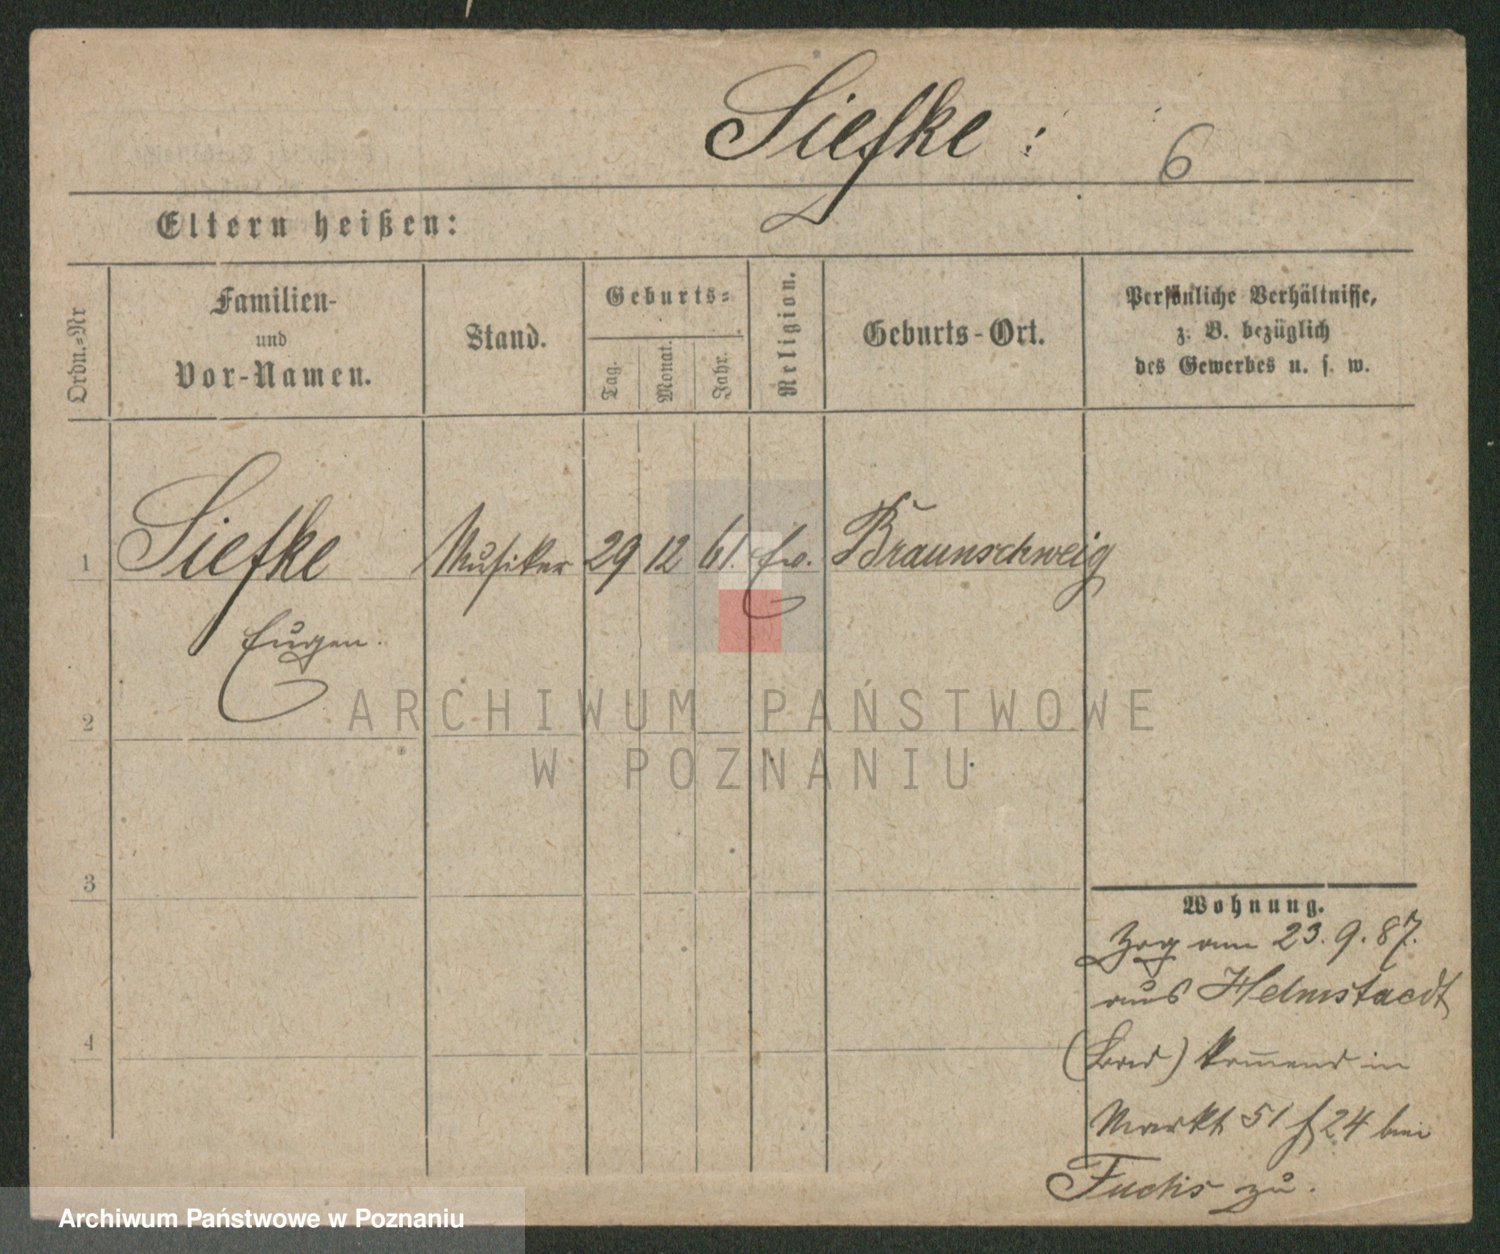 Siefke:
6
Eltern heißen:
Ordn.=Nr
Familien-
und
Vor-Namen.
Stand.
Geburts=
Tag.
Monat.
Jahr.
Religion.
Geburts-Ort.
Persönliche Verhältnisse,
z. B. bezüglich
des Gewerbes u. s. w.
1 Siefke Musiker 29 12 61. ev. Braunschweig
Eugen.
2
3
4
Wohnung.
Zog am 23.9.87.
aus Helmstaedt
(Bad) kommend in
Markt 51 f 24 bei
Fuchs zu.
ARCHIWUM PAŃSTWOWE
W POZNANIU
Archiwum Państwowe w Poznaniu